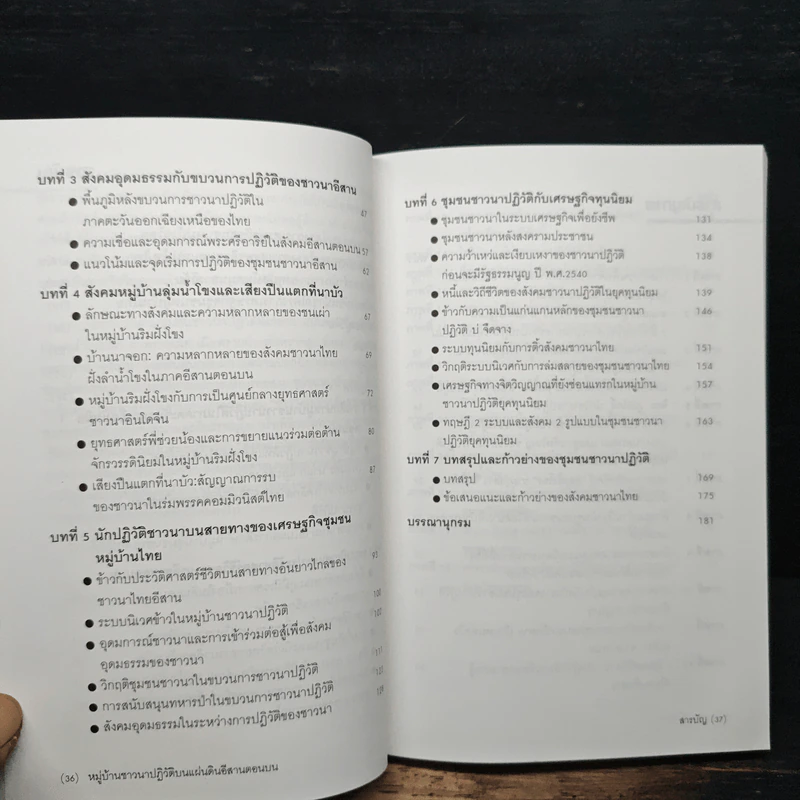 บทที่ 3 สังคมอุดมธรรมกับขบวนการปฏิวัติของชาวนาอีสาน
● พื้นภูมิหลังขบวนการชาวนาปฏิวัติใน
ภาคตะวันออกเฉียงเหนือของไทย 47
● ความเชื่อและอุดมการณ์พระศรีอาริย์ในสังคมอีสานตอนบน 57
● แนวโน้มและจุดเริ่มการปฏิวัติของชุมชนชาวนาอีสาน 62
บทที่ 4 สังคมหมู่บ้านลุ่มน้ำโขงและเสียงปืนแตกที่นาบัว
● ลักษณะทางสังคมและความหลากหลายของชนเผ่า 67
ในหมู่บ้านริมฝั่งโขง
● บ้านนาจอก: ความหลากหลายของสังคมชาวนาไทย 69
ฝั่งลำน้ำโขงในภาคอีสานตอนบน
● หมู่บ้านริมฝั่งโขงกับการเป็นศูนย์กลางยุทธศาสตร์ 72
ชาวนาอินโดจีน
● ยุทธศาสตร์พี่ช่วยน้องและการขยายแนวร่วมต่อต้าน 80
จักรวรรดินิยมในหมู่บ้านริมฝั่งโขง
● เสียงปืนแตกที่นาบัว:สัญญาณการรบ 87
ของชาวนาในร่มพรรคคอมมิวนิสต์ไทย
บทที่ 5 นักปฏิวัติชาวนาบนสายทางของเศรษฐกิจชุมชน
หมู่บ้านไทย
● ข้าวกับประวัติศาสตร์ชีวิตบนสายทางอันยาวไกลของ 93
ชาวนาไทยอีสาน
● ระบบนิเวศข้าวในหมู่บ้านชาวนาปฏิวัติ
● อุดมการณ์ชาวนาและการเข้าร่วมต่อสู้เพื่อสังคม
อุดมธรรมของชาวนา
● วิกฤติชุมชนชาวนาในขบวนการชาวนาปฏิวัติ
● การสนับสนุนทหารป่าในขบวนการชาวนาปฏิวัติ
● สังคมอุดมธรรมในระหว่างการปฏิวัติของชาวนา
(36) หมู่บ้านชาวนาปฏิวัติบนแผ่นดินอีสานตอนบน
บทที่ 6 ชุมชนชาวนาปฏิวัติกับเศรษฐกิจทุนนิยม
● ชุมชนชาวนาในระบบเศรษฐกิจเพื่อยังชีพ 131
● ชุมชนชาวนาหลังสงครามประชาชน 134
● ความว้าเหว่และเงียบเหงาของชาวนาปฏิวัติ 138
ก่อนจะมีรัฐธรรมนูญ ปี พ.ศ.2540
● หนี้และวิถีชีวิตของสังคมชาวนาปฏิวัติในยุคทุนนิยม 139
● ข้าวกับความเป็นแก่นแกนหลักของชุมชนชาวนา 146
ปฏิวัติ บ่ จืดจาง
● ระบบทุนนิยมกับการติ้วสังคมชาวนาไทย 151
● วิกฤติระบบนิเวศกับการล่มสลายของชุมชนชาวนาไทย 154
● เศรษฐกิจทางจิตวิญญาณที่ยังซ่อนแทรกในหมู่บ้าน 157
ชาวนาปฏิวัติยุคทุนนิยม
● ทฤษฎี 2 ระบบและสังคม 2 รูปแบบในชุมชนชาวนา 163
ปฏิวัติยุคทุนนิยม
บทที่ 7 บทสรุปและก้าวย่างของชุมชนชาวนาปฏิวัติ
● บทสรุป 169
● ข้อเสนอแนะและก้าวย่างของสังคมชาวนาไทย 175
บรรณานุกรม 181
สารบัญ (37)